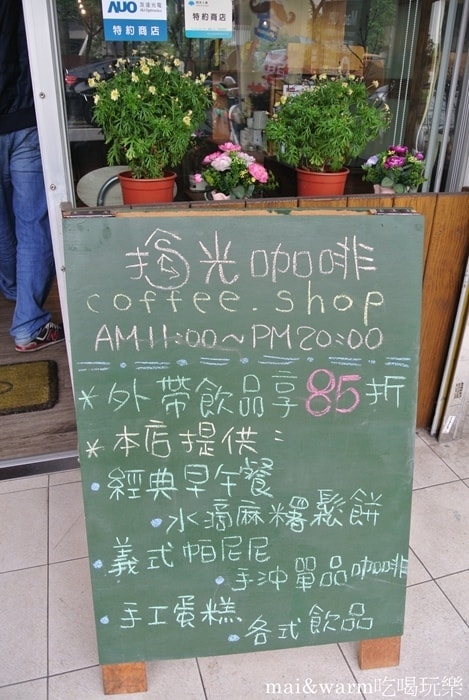 AUO 友達光電
特約商店
特約商店
拾光咖啡
coffee.shop
AM11:00~PM20:00
*外帶飲品享85折
*本店提供:
•經典早午餐
•水滴麻糬鬆餅
•義式帕尼尼
•手沖單品咖啡
•手工蛋糕
•各式飲品
mai&warm吃喝玩樂